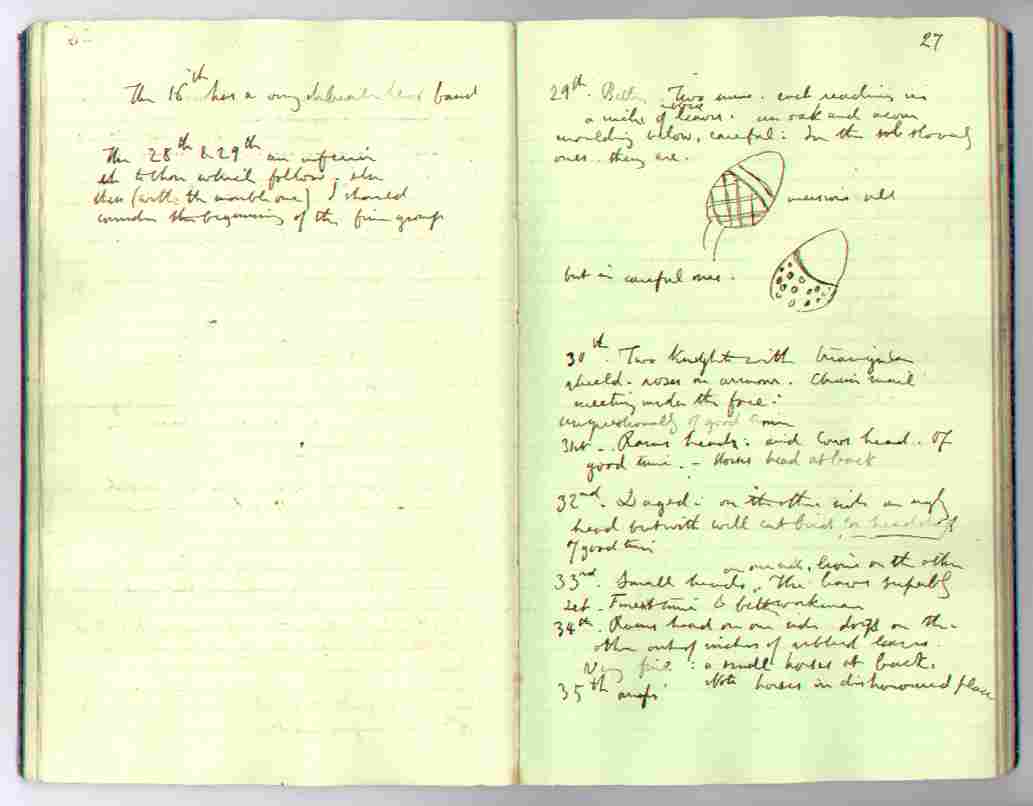 The 16th has a very delicate band
The 28th & 29th are inferior
to those which follow; else
these (with the marble one) I should
consider the beginning of the fine groups
27
29th. Better. Two men. each reaching in
a niche of leaves. an oak and acorn
moulding below, careful: In the slovenly
ones. they are.
but in careful ones.
30th. Two Knights with triangular
shield. roses on armour. Chain mail
meeting under the face:
unquestionably of good time
31st - Rams heads: and Cows head. Of
good time. - Horses head at back
32nd. Defaced: on the other side an ugly
head but with well cut
of good time
on one side, lions on the other
33rd. Small heads. The leaves superbly
set - Finest time & best workman
34th. Rams head on one side dogs on the
other out of niches of ribbed leaves.
Very fine: a small horses at back.
35th Note horses in dishonoured place